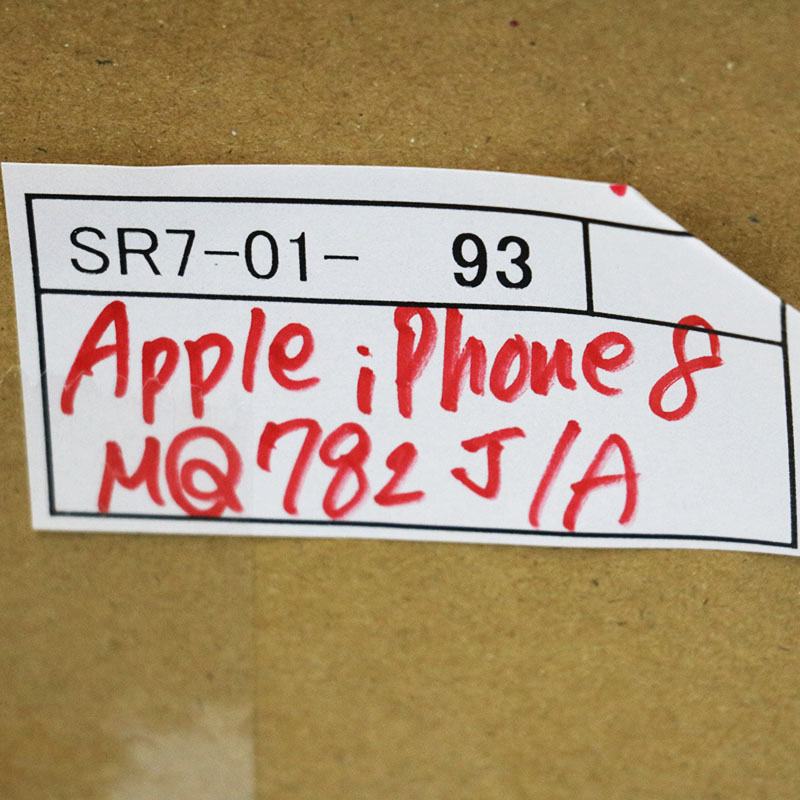 SR7-01- 93
Apple iPhone 8
MQ782J/A